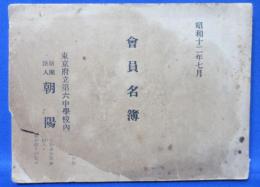 昭和十二年七月
會員名簿
東京府立第六中學校內
財團法人 朝陽